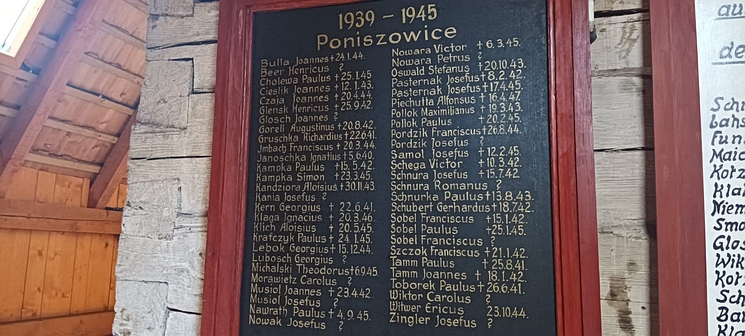 1939 – 1945
Poniszowice
Bulla Joannes +24.1.44.
Beer Henricus ?
Cholewa Paulus +25.1.45
Cieślik Joannes +12.1.43.
Czaja Joannes +20.4.44.
Glensk Henricus +25.9.42.
Glosch Joannes ?
Gorell Augustinus +20.8.42.
Gruschka Richardus +22.6.41.
Jmbach Franciscus + 20.3.44.
Janoschka Ignatius + 5.6.40.
Kampka Paulus + 15.5.42.
Kampka Simon + 23.3.45.
Kandziora Aloisius +30.11.43.
Kania Josefus ?
Kern Georgius + 22.6.41.
Klaga Ignacius + 20.3.46.
Klich Aloisius + 20.5.45.
Krafczyk Paulus + 24.1.45.
Lebok Georgius + 15.12.44.
Lubosch Georgius ?
Michalski Theodorus +6.9.45
Morawietz Carolus ?
Musiol Joannes +23.4.42.
Musiol Josefus ?
Nawrath Paulus + 4.9.45.
Nowak Josefus ?
Nowara Victor + 6.3.45.
Nowara Petrus ?
Oswald Stefanus +20.10.43.
Pasternak Josefus +8.2.42.
Pasternak Josefus +17.4.45.
Piechutta Alfonsus + 16.4.47.
Pollok Maximilianus + 19.3.43.
Pollok Paulus + 20.2.45.
Pordzik Franciscus +26.8.44.
Pordzik Josefus ?
Samol Josefus + 12.2.45.
Schega Victor + 10.3.42.
Schnura Josefus + 15.7.42.
Schnura Romanus ?
Schnurka Paulus +13.8.43.
Schubert Gerhardus +18.7.42.
Sobel Franciscus +15.1.42.
Sobel Paulus +25.1.45.
Sobel Franciscus ?
Szczok Franciscus +21.1.42.
Tamm Paulus + 25.8.41.
Tamm Joannes + 18.1.42.
Toborek Paulus +26.6.41.
Wiktor Carolus ?
Witwer Ericus 23.10.44.
Zingler Josefus ?
au
de